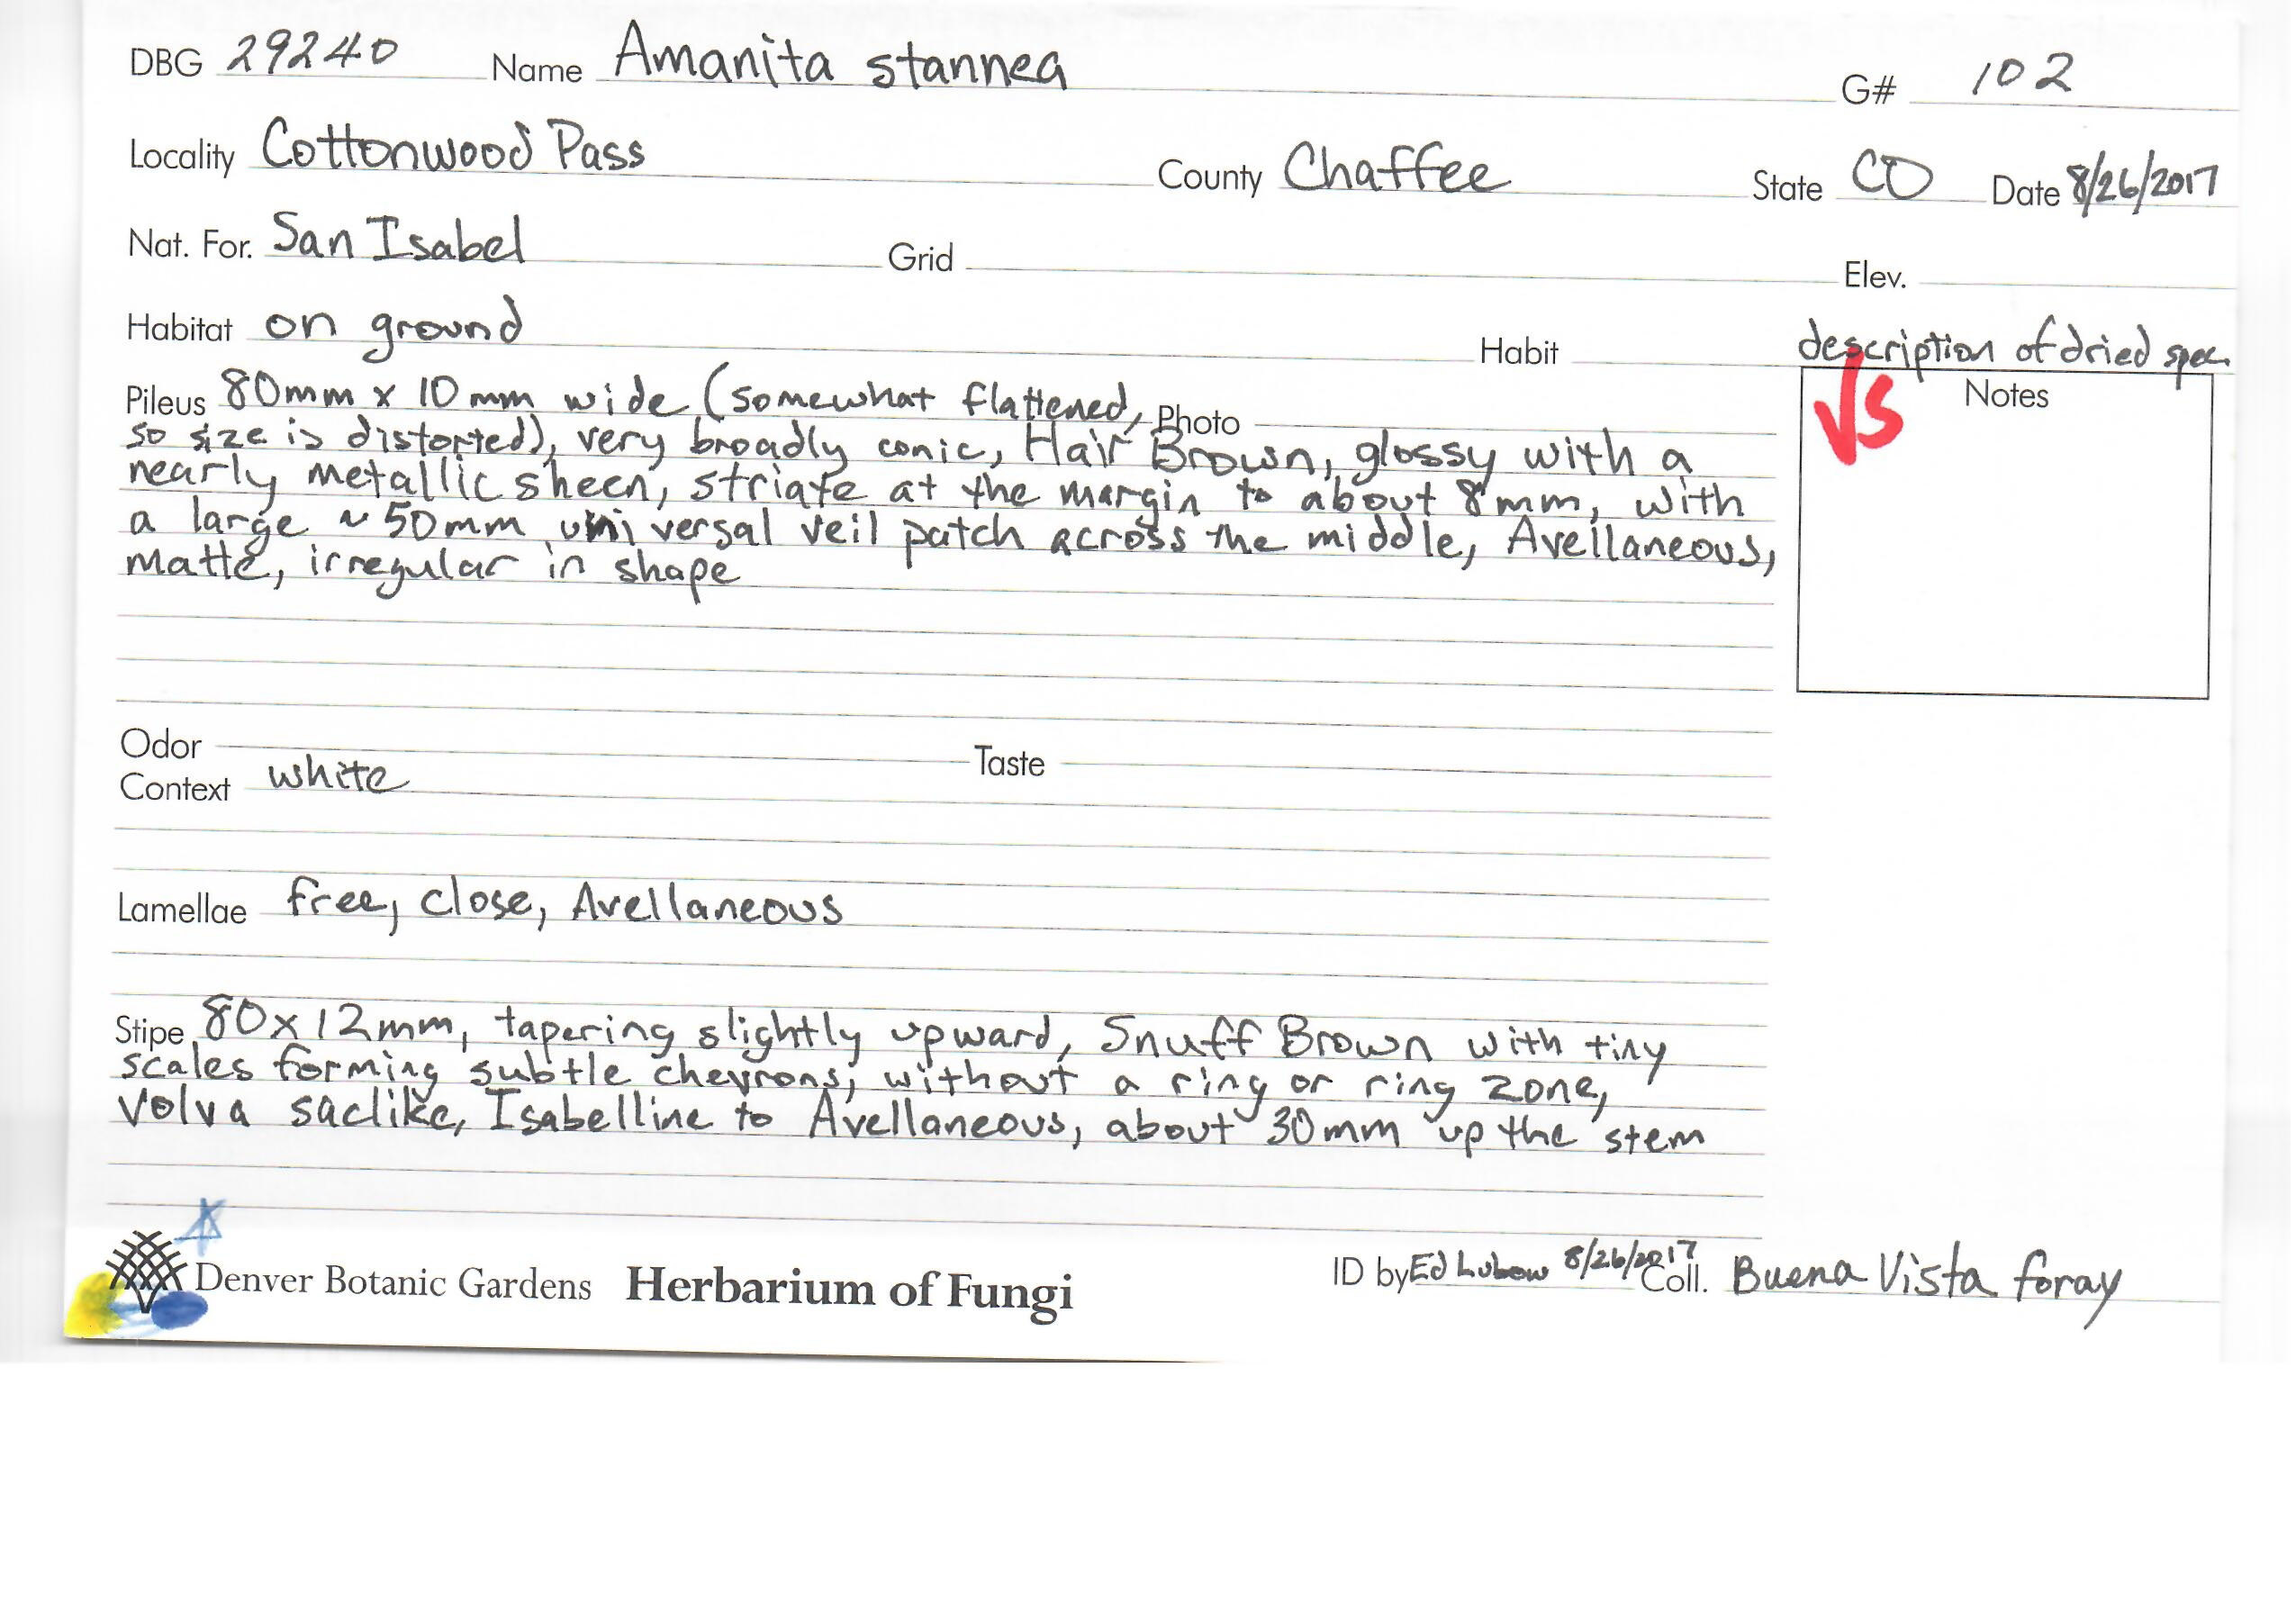 DBG 29240 Name Amanita stannea G# 102
Locality Cottonwood Pass County Chaffee State CO Date 8/26/2017
Nat. For. San Isabel Grid Elev.
Habitat on ground Habit description of dried spec.
Pileus 80mm x 10mm wide (somewhat flattened, Photo
VS Notes
so size is distorted), very broadly conic, Hair Brown, glossy with a
nearly metallic sheen, striate at the margin to about 8mm, with
a large ~50mm universal veil patch across the middle, Avellaneous,
matte, irregular in shape
Odor Taste
Context white
Lamellae free, close, Avellaneous
Stipe 80x12mm, tapering slightly upward, Snuff Brown with tiny
scales forming subtle chevrons, without a ring or ring zone,
Volva saclike, Isabelline to Avellaneous, about 30mm up the stem
Denver Botanic Gardens Herbarium of Fungi ID by Ed Lubow 8/26/2017 Coll. Buena Vista foray